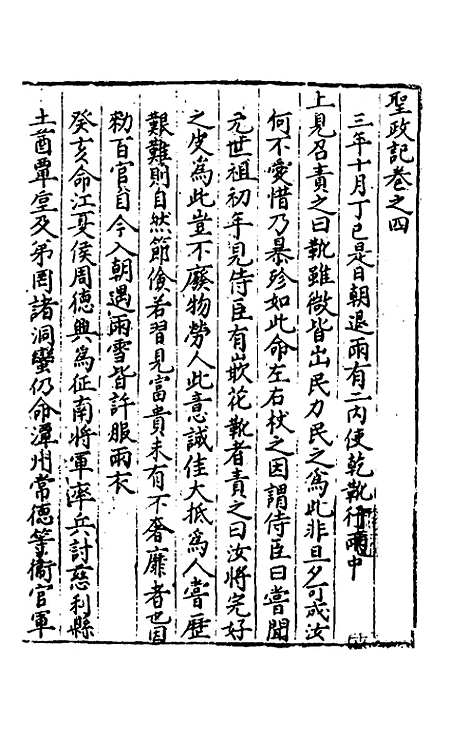 聖政記卷之四
三年十月丁巳是日朝退雨有二内使乾靴行雨中
上見召責之曰靴雖微皆出民力民之爲此非旦夕可成汝
何不愛惜乃暴殄如此命左右杖之因謂侍臣曰嘗聞
元世祖初年見侍臣有嵌花靴者責之曰汝將完好
之皮爲此豈不廢物勞人此意誠佳大抵爲人嘗歷
艱難則自然節儉若習見富貴未有不奢靡者也因
勑百官自今入朝遇雨雪皆許服雨衣
癸亥命江夏侯周德興爲征南將軍率兵討慈利縣
土酋覃垕及茅罔諸洞蠻仍命潭州常德等衞官軍